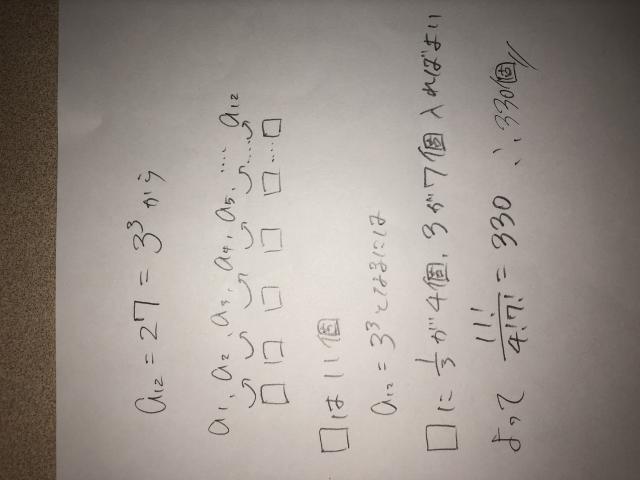 a₁₂ = 27 = 3³ から
a₁, a₂, a₃, a₄, a₅, ‥‥ a₁₂
□ □ □ □ □ … □
□は11個
a₁₂ = 3³ となるには
□に 1/3 が4個, 3が7個 入ればよい
よって 11!/4!7! = 330 ∴ 330個//